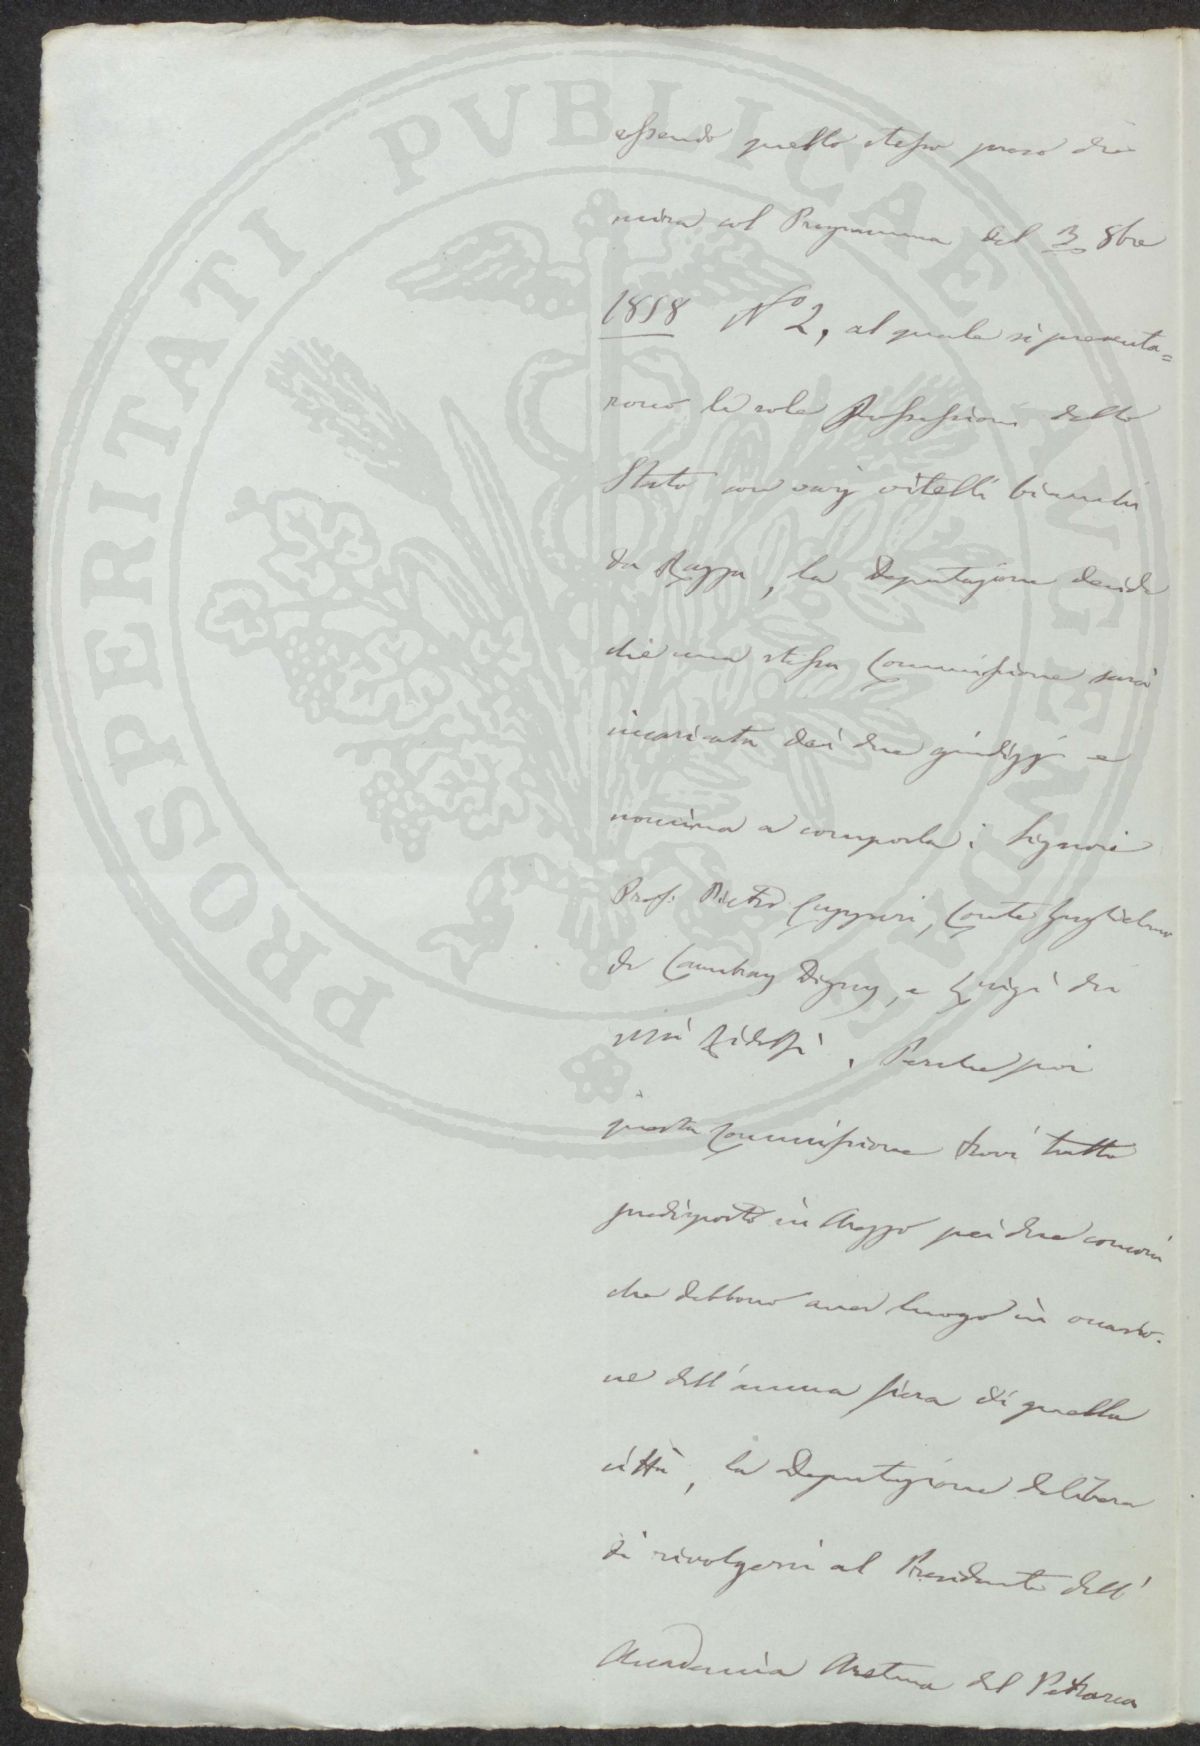 PROSPERITATI PVBLICAE AVGENDAE
essendo quello stesso preso di
mira col Programma del 3 8bre
1858 N° 2, al quale si presenta=
rono le sole Possessioni dello
Stato con varj vitelli bianchi
da Razza, la Deputazione decide
che una stessa Commissione sarà
incaricata dei due giudizj e
nomina a comporla i Signori
Prof. Pietro Cuppari, Conte Guglielmo
de Cambray Digny, e Luigi dei
Mši Ridolfi. Perche poi
questa Commissione trovi tutto
predisposto in Arezzo pei due concorsi
che debbono aver luogo in occasio-
ne dell'annua fiera di quella
città, la Deputazione delibera
di rivolgersi al Presidente dell'
Accademia Aretina del Petrarca